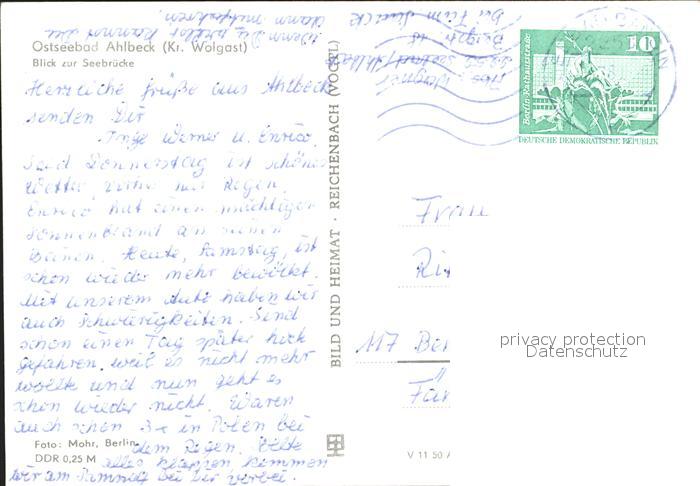 Ostseebad Ahlbeck (Kr. Wolgast)
Blick zur Seebrücke
Herzliche Grüße aus Ahlbeck
senden Dir
Inge Werner u. Enrico.
Seid Donnerstag ist schönes
Wetter vorher nur Regen.
Enrico hat einen mächtigen
Sonnenbrand an seinen
Beinen. Heute, Samstag, ist
schon wieder mehr bewölkt.
Mit unserem Auto haben wir
auch Schwierigkeiten. Sind
schon einen Tag später hoch
gefahren, weil es nicht mehr
wollte und nun geht es
schon wieder nicht. Waren
auch schon 3x in Polen bei
dem Regen. Sollte
alles klappen kommen
wir am Samstag bei Dir vorbei.
Wenn Du willst kannst Du
dann mitfahren.
Foto: Mohr, Berlin
DDR 0,25 M
BILD UND HEIMAT · REICHENBACH (VOGTL)
V 11 50 A
Abs.: Wagner
bei Fam.
Berlin-Rathausstraße
10
DEUTSCHE DEMOKRATISCHE REPUBLIK
Frau
117 Ber
privacy protection
Datenschutz